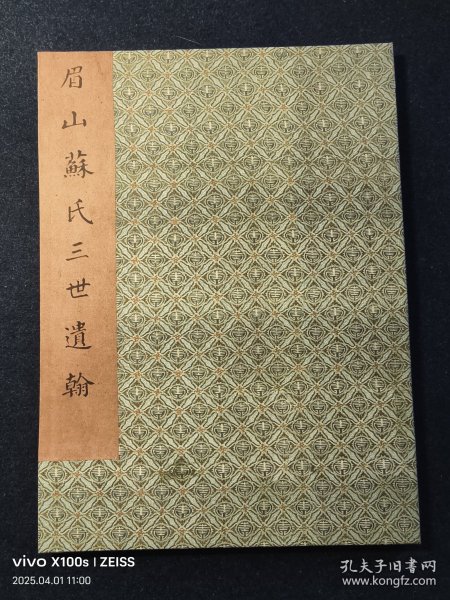 眉山蘇氏三世遺翰
vivo X100s | ZEISS
2025.04.01 11:00
孔夫子旧书网
www.kongfz.com